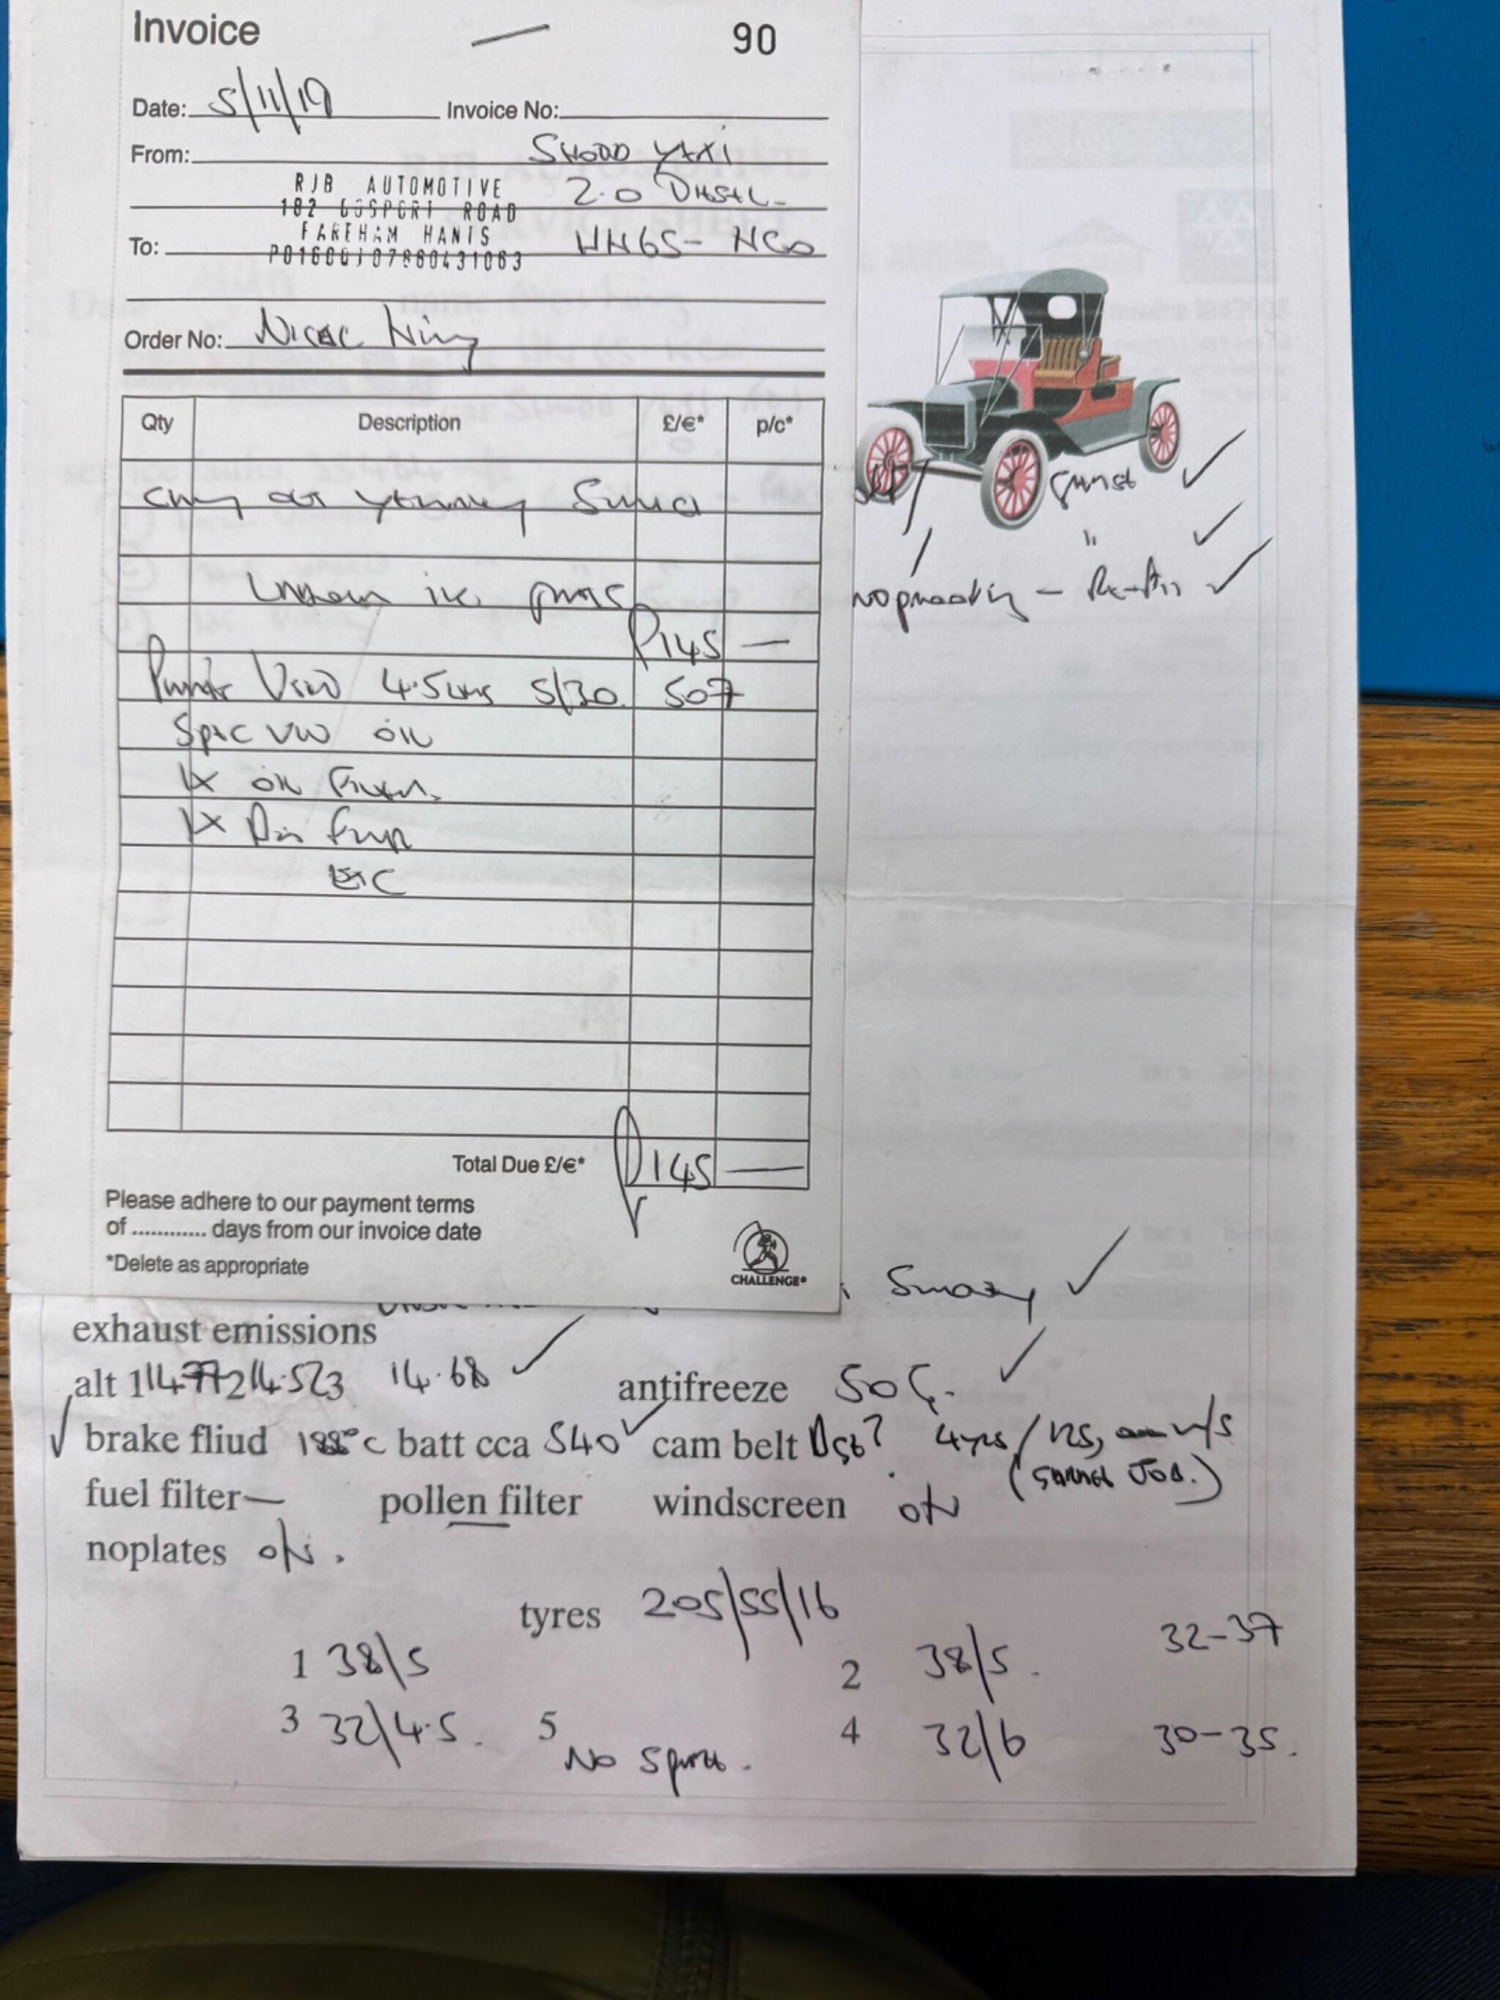 Invoice
90
Date: 5/11/19 Invoice No:
From: SKODA YETI
RJB AUTOMOTIVE 2.0 DIESEL
182 GOSPORT ROAD
FAREHAM HANTS
To: HN65-NCO
PO16 07860431063
Order No:
Qty Description £/€* p/c*
Carry out yearly Service
Labour inc parts
£145 —
Parts Used 4.5Ltrs 5/30 507
Spec VW oil
1X oil Filter
1X Air Filter
ETC
Total Due £/€* £145 —
Please adhere to our payment terms
of ............ days from our invoice date
*Delete as appropriate
CHALLENGE®
"
exhaust emissions
alt 1 14.77 2 14.52 3 14.68 antifreeze 50
brake fliud 188°C batt cca 540 cam belt 4yrs
fuel filter — pollen filter windscreen ok
(JOB.)
noplates ok.
tyres 205/55/16
1 38/5 2 38/5. 32-37
3 32/4.5. 5 4 32/6 30-35.
No spare.